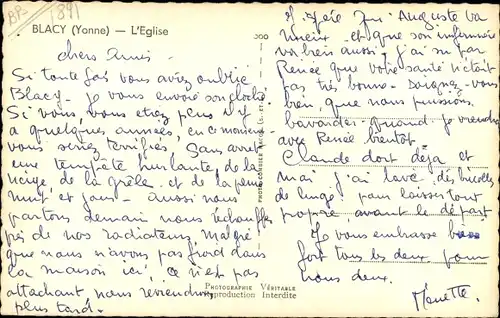 BP-1891
BLACY (Yonne) — L'Eglise
chers Amis -
Si toute fois vous aviez oublié
Blacy - Je vous envoie son clocher
Si vous, vous étiez plus il y
a quelques années, en ce moment
vous seriez terrifiés Sans arrêt
une tempête hurlante, de la
neige, de la grêle et de la pluie
nuit et jour - aussi nous
partons demain nous réchauffer
près de nos radiateurs, malgré
que nous n'avons pas froid dans
la maison ici, ce n'est pas
attachant, nous reviendrons
plus tard.
PHOTOGRAPHIE VÉRITABLE
Reproduction Interdite
Auguste va
mieux et que son infirmière
va bien aussi - j'ai su par
Renée que votre santé n'était
pas très bonne - Soignez-vous
bien, que nous puissions
bavarder quand je viendrai
avec Renée bientôt -
Claude dort déjà et
moi j'ai lavé des bricoles
de linge pour laisser tout
propre avant le départ
Je vous embrasse bien
fort tous les deux pour
nous deux.
Ginette.